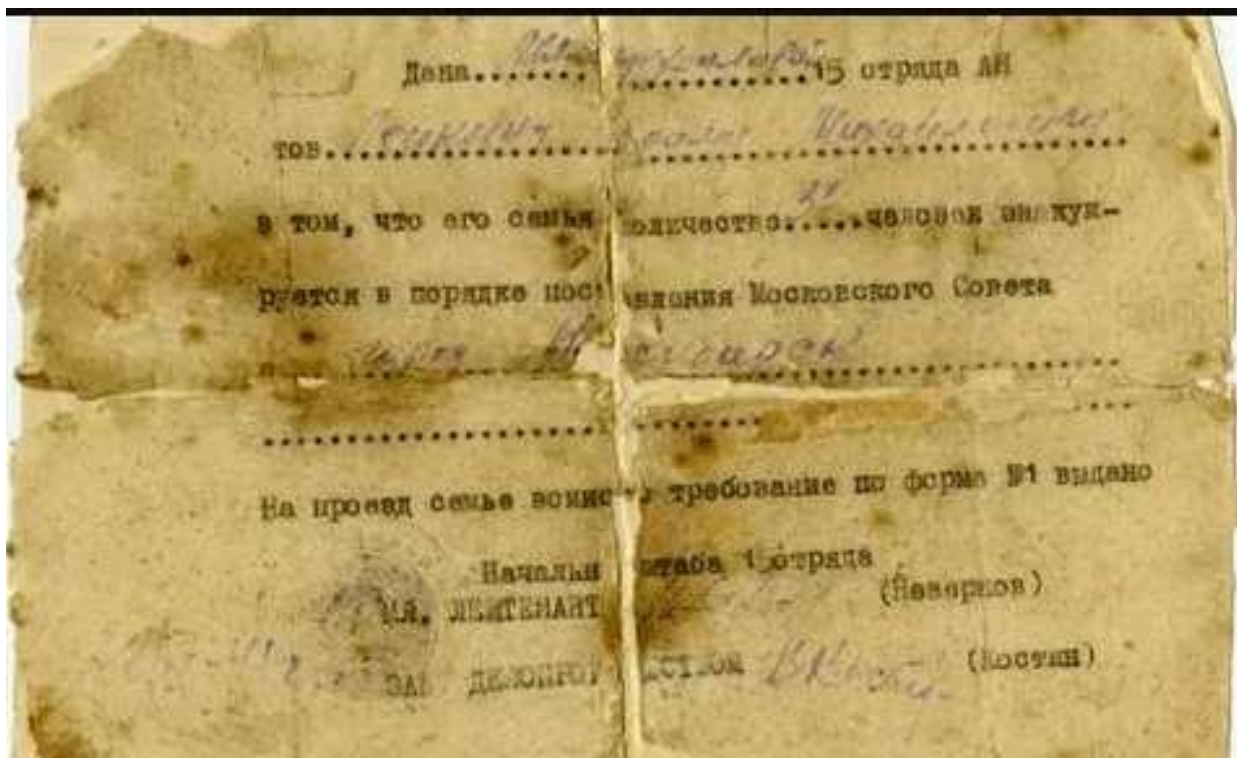 Дана.......................15 отряда АН
тов.................. Михайловичу
в том, что его семья количество.....человек эвакуи-
руется в порядке постановления Московского Совета
в.. город
На проезд семье воинское требование по форме №1 выдано
Начальник штаба 15 отряда
МЛ. ЛЕЙТЕНАНТ (Неверков)
ЗАВ ДЕЛОПРОИЗВОДСТВОМ (Костин)